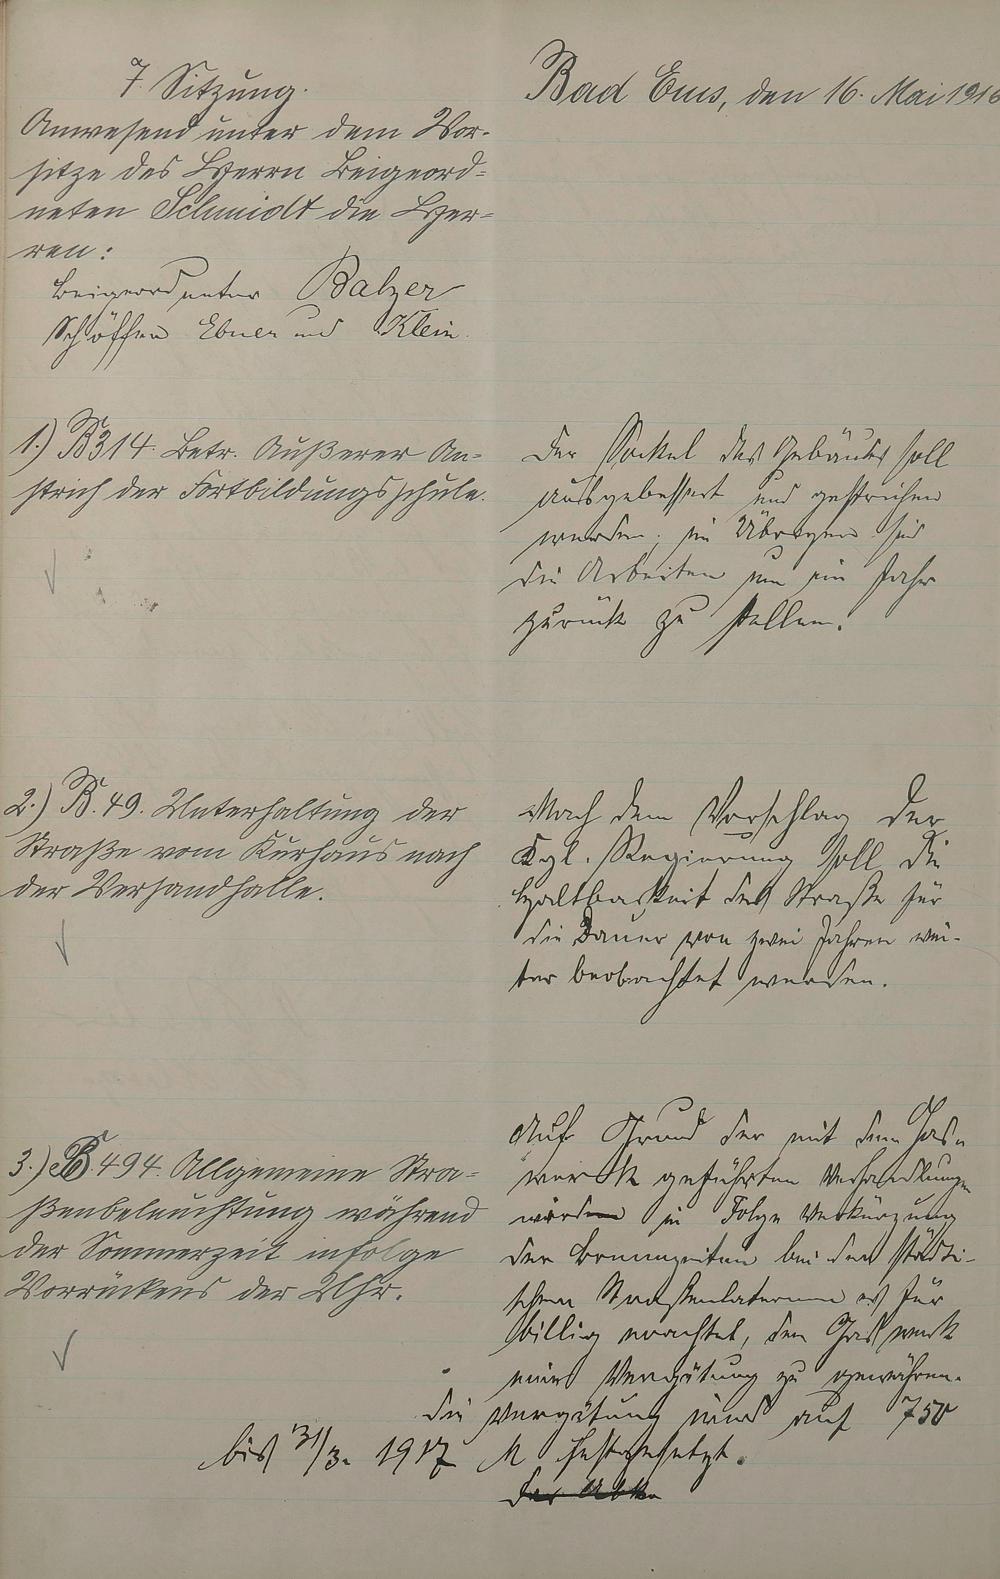 7 Sitzung.
Bad Ems, den 16. Mai 1916
Anwesend unter dem Vor-
sitze des Herrn Beigeord-
neten Schmidt die Her-
ren:
Beigeordneter Balzer
Schöffen Ebner und Klein.
1.) B 314. Betr. Äußerer An-
strich der Fortbildungsschule.
Der Sockel des Gebäudes soll
ausgebessert und gestrichen
werden; im Übrigen sind
die Arbeiten um ein Jahr
zurück zu stellen.
2.) B. 49. Unterhaltung der
Straße vom Kurhaus nach
der Versandhalle.
Nach dem Vorschlag der
Kgl. Regierung soll die
Haltbarkeit der Straße für
die Dauer von zwei Jahren wei-
ter beobachtet werden.
3.) B. 494. Allgemeine Stra-
ßenbeleuchtung während
der Sommerzeit infolge
Vorrückens der Uhr.
Auf Grund der mit dem Gas-
werk geführten Verhandlungen
in Folge Verkürzung
der Brennzeiten bei den städti-
schen Straßenlaternen es für
billig erachtet, dem Gaswerk
eine Vergütung zu gewähren.
Die Vergütung wird auf 750
bis 31/3. 1917 M festgesetzt.